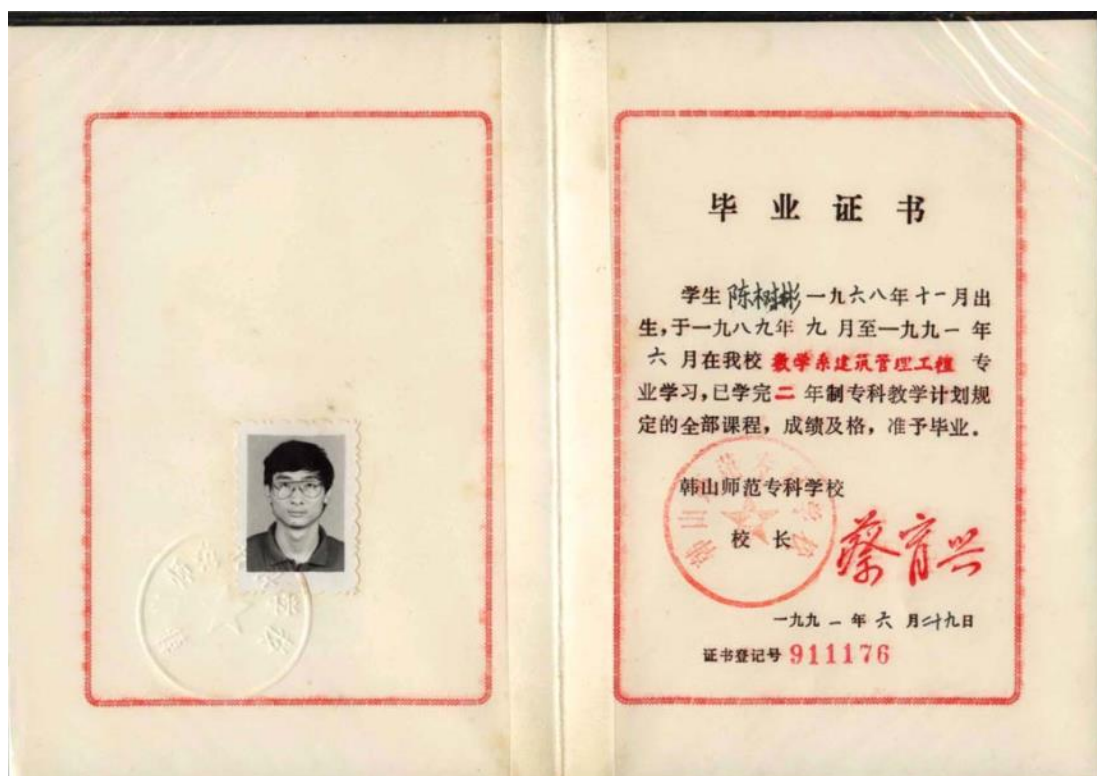 毕业证书
学生陈树彬一九六八年十一月出
生,于一九八九年九月至一九九一年
六月在我校数学系建筑管理工程专
业学习,已学完二年制专科教学计划规
定的全部课程，成绩及格，准予毕业。
韩山师范专科学校
校长
蔡育兴
一九九一年六月二十九日
证书登记号 911176
韩山师范专科学校